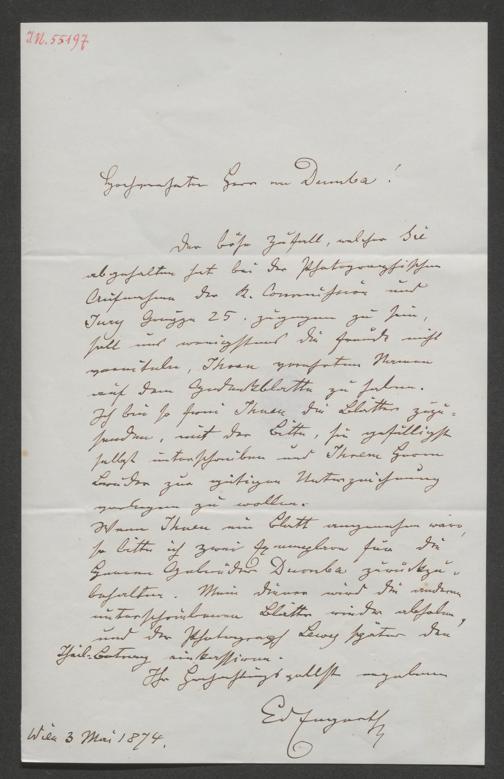 I.N. 55197
Hochverehrter Herr von Dumba!
Der böse Zufall, welcher Sie
abgehalten hat bei der Photographischen
Aufnahme der K. Commission und
Jury Gruppe 25. zugegen zu sein,
soll uns wenigstens die Freude nicht
vereiteln, Ihren verehrten Namen
auf dem Gedenkblatte zu haben.
Ich bin so frei Ihnen die Blätter zuzu-
senden, mit der Bitte, sie gefälligst
selbst unterschreiben und Ihrem Herrn
Bruder zur gütigen Unterzeichnung
vorlegen zu wollen.
Wenn Ihnen ein Blatt angenehm wäre,
so bitte ich zwei Exemplare für die
Herren Gebrüder Dumba zurückzu-
behalten. Mein Diener wird die anderen
unterschriebenen Blätter wieder abholen,
und der Photograph Löwy später den
Theil-Betrag einkassieren.
Ihr Hochachtungsvollst ergebener
Ed Engerth
Wien 3 Mai 1874.